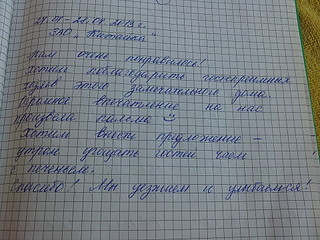 21.08-22.08.2013 г.
ЗАО "Китайка"
Нам очень понравилось!
Хотим поблагодарить гостеприимных
хозяев этого замечательного дома.
Огромное впечатление на нас
произвела поляна ☺
Хотим внести предложение –
утром угощать гостей чаем
с печеньем.
Спасибо! Мы уезжаем и улыбаемся!